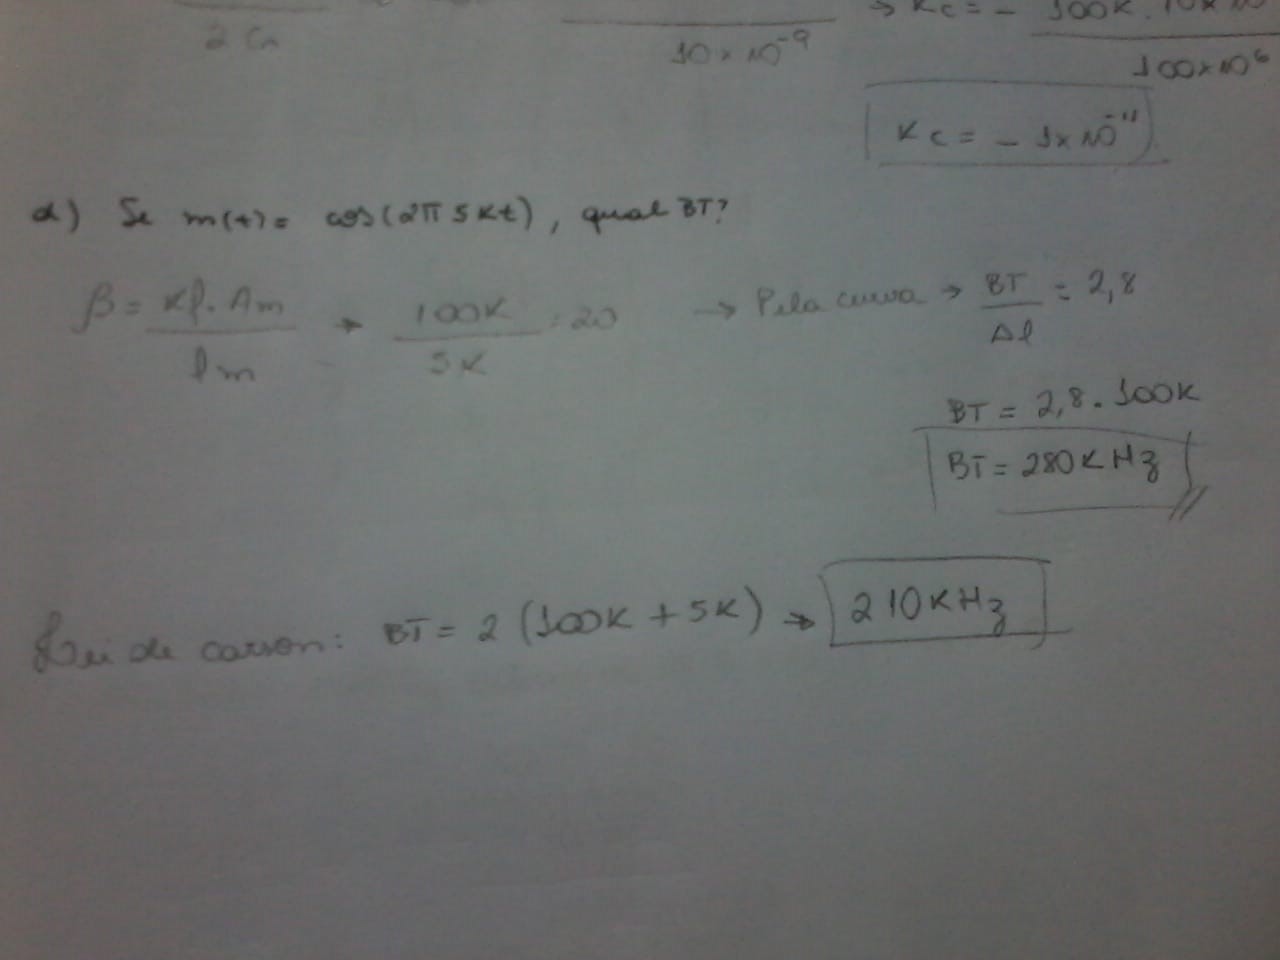 → Kc = - 100K . 10x10
2Cn 10x10⁻⁹ 100x10⁶
Kc = - 1x10⁻¹¹
d) Se m(t) = cos(2π5Kt), qual BT?
β = Kf.Am / fm → 100K / 5K = 20 → Pela curva → BT / Δf = 2,8
BT = 2,8 . 100K
BT = 280KHz
Lei de carson: BT = 2 (100K + 5K) → 210KHz